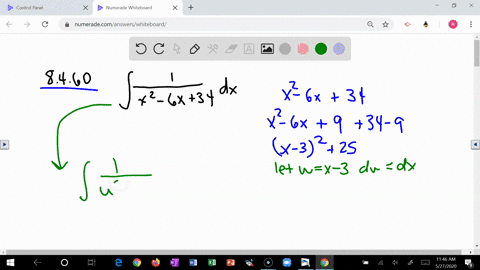 Control Panel
Numerade Whiteboard
numerade.com/answers/whiteboard/
8.4.60 ∫ 1/(x²-6x+34) dx
x²-6x+34
x²-6x+9+34-9
(x-3)²+25
let u=x-3 du=dx
∫ 1/u²
11:46 AM
5/27/2020